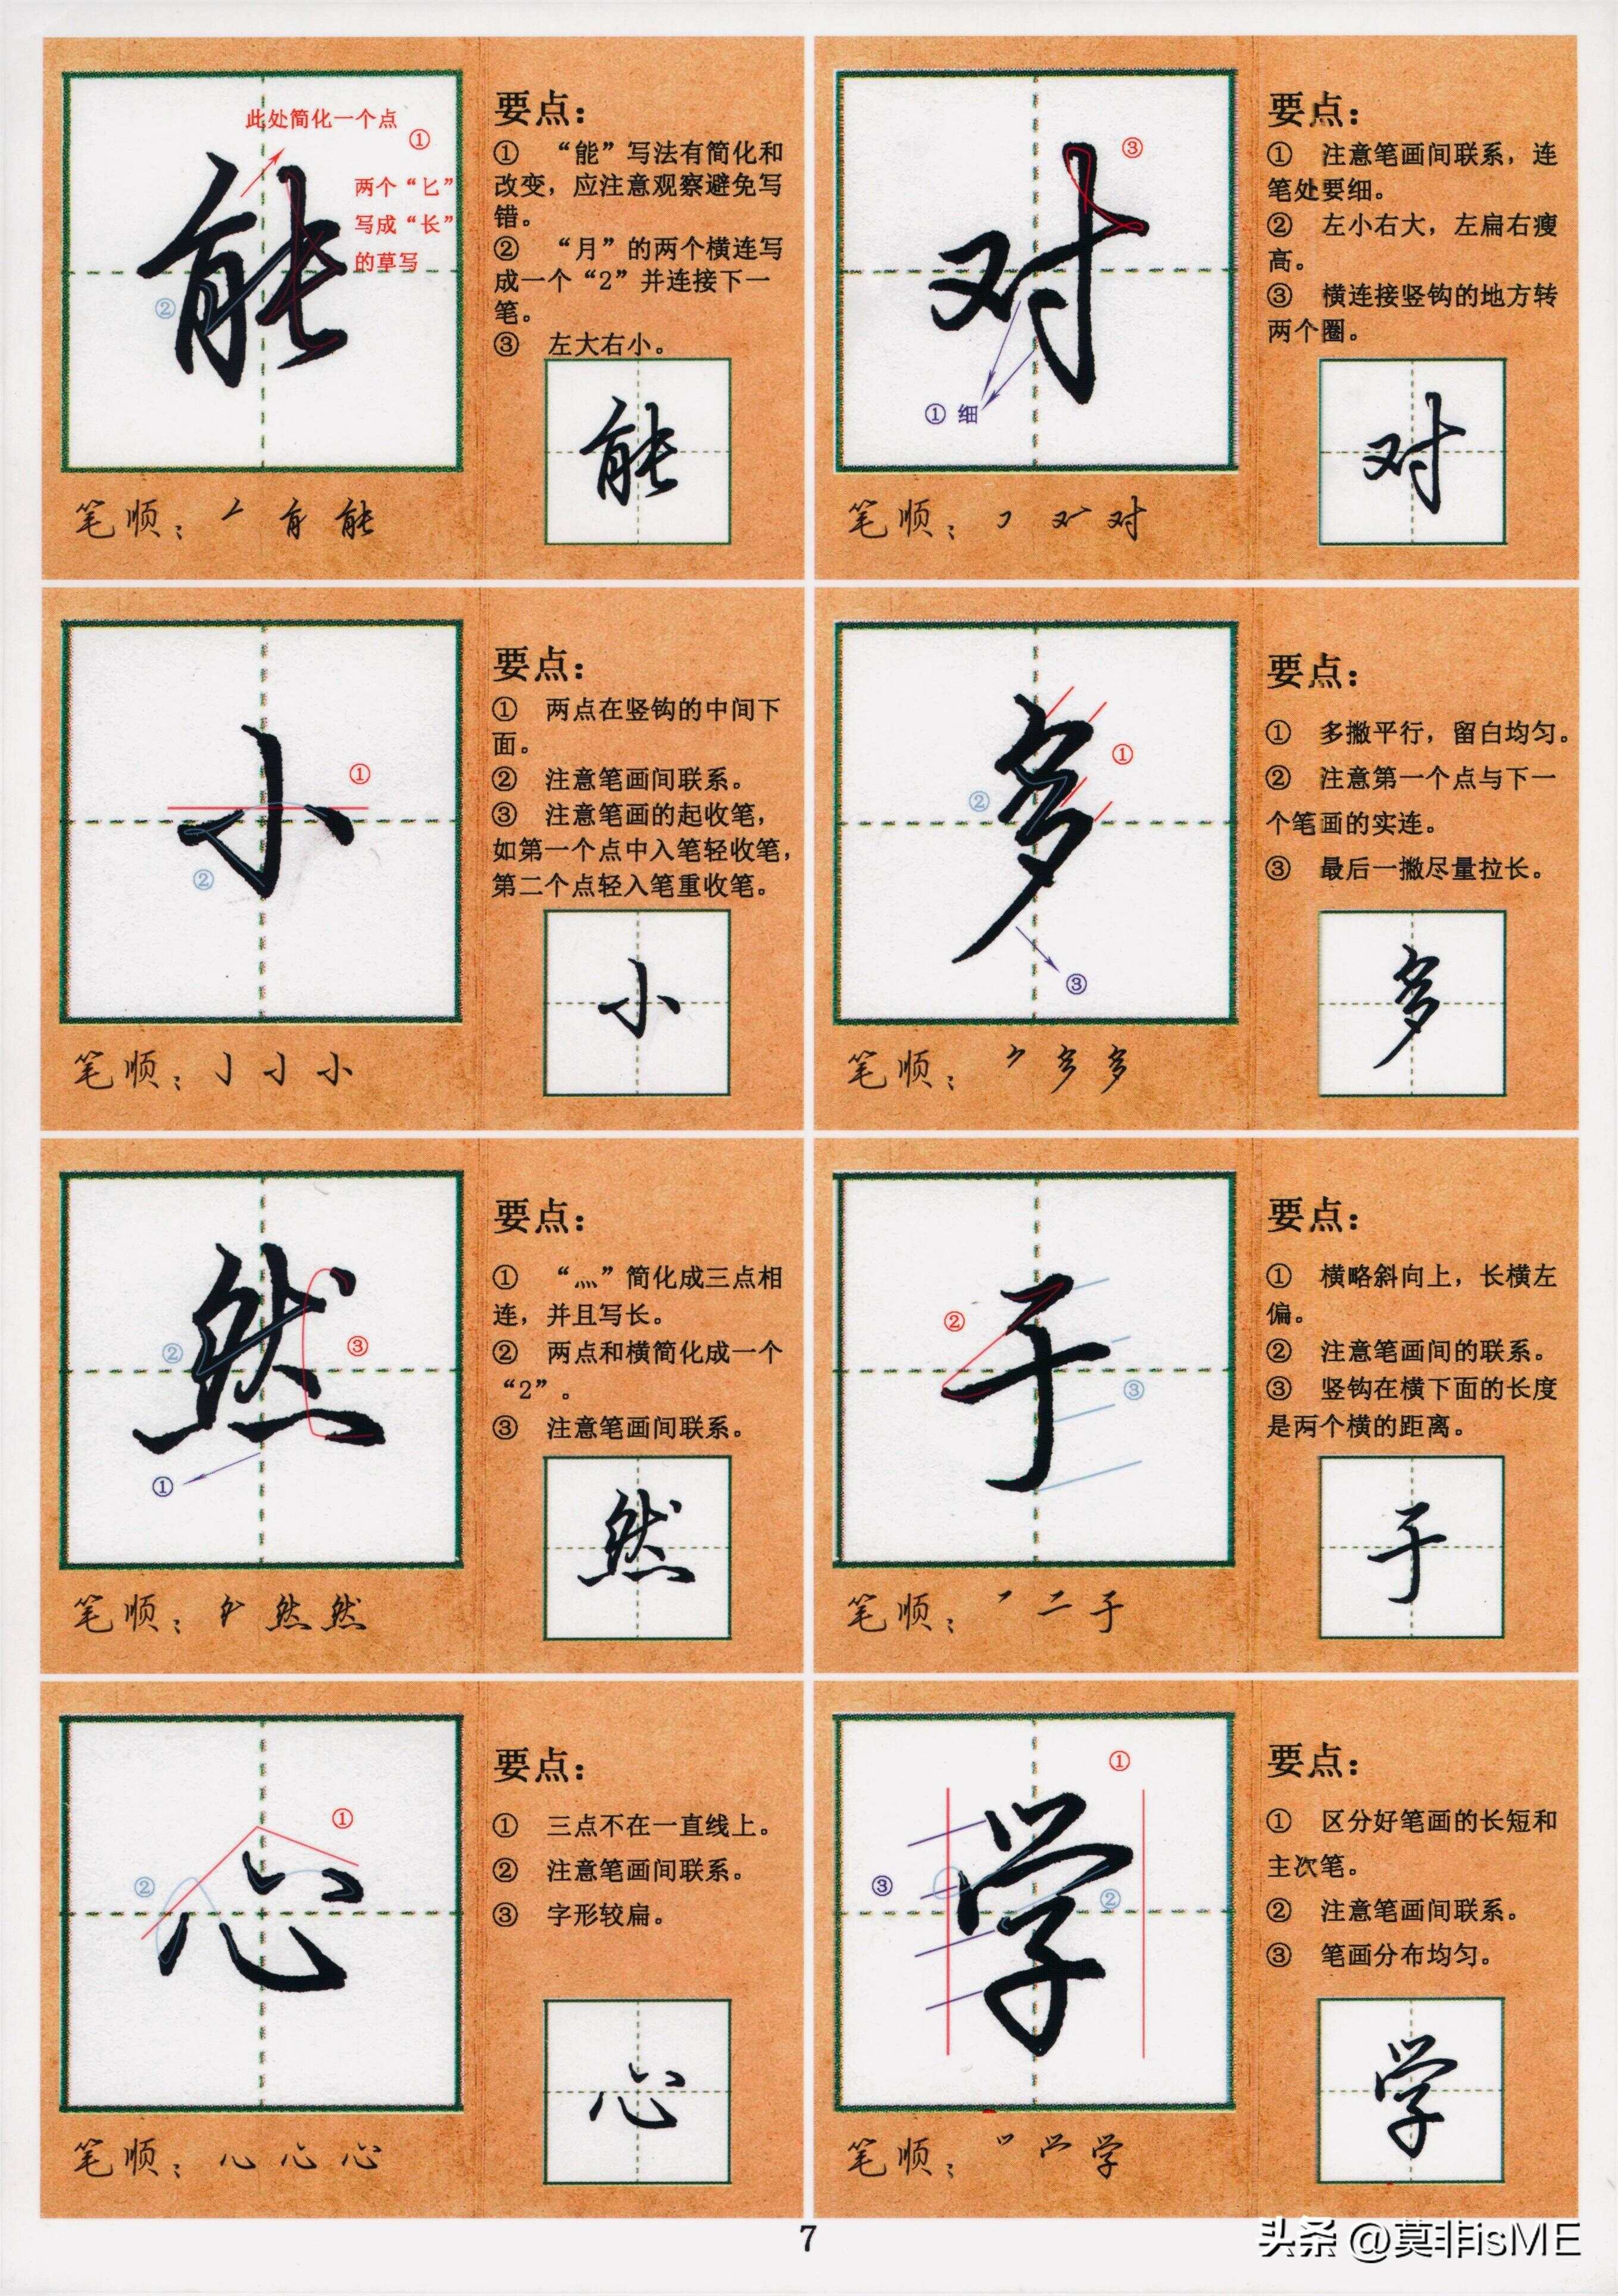 能
此处简化一个点
①
两个“匕”
写成“长”
的草写
②
要点：
① “能”写法有简化和
改变，应注意观察避免写
错。
② “月”的两个横连写
成一个“2”并连接下一
笔。
③ 左大右小。
能
笔顺： 能
对
③
① 细
要点：
① 注意笔画间联系，连
笔处要细。
② 左小右大，左扁右瘦
高。
③ 横连接竖钩的地方转
两个圈。
对
笔顺： 对
小
①
②
要点：
① 两点在竖钩的中间下
面。
② 注意笔画间联系。
③ 注意笔画的起收笔，
如第一个点中入笔轻收笔，
第二个点轻入笔重收笔。
小
笔顺： 小
多
①
②
③
要点：
① 多撇平行，留白均匀。
② 注意第一个点与下一
个笔画的实连。
③ 最后一撇尽量拉长。
多
笔顺： 多 多
然
②
③
①
要点：
① “灬”简化成三点相
连，并且写长。
② 两点和横简化成一个
“2”。
③ 注意笔画间联系。
然
笔顺： 然 然
于
②
③
要点：
① 横略斜向上，长横左
偏。
② 注意笔画间的联系。
③ 竖钩在横下面的长度
是两个横的距离。
于
笔顺： 二 于
心
①
②
要点：
① 三点不在一直线上。
② 注意笔画间联系。
③ 字形较扁。
心
笔顺： 心 心
学
①
③
②
要点：
① 区分好笔画的长短和
主次笔。
② 注意笔画间联系。
③ 笔画分布均匀。
学
笔顺： 学
7
头条 @莫非isME